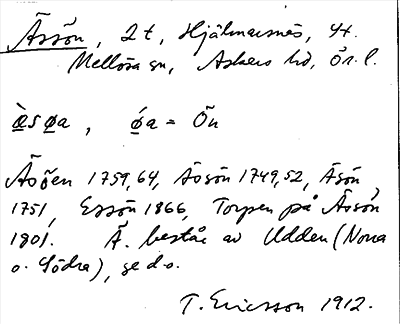 Ässön, 2 t, Hjälmarsnäs, St.
Mellösa sn, Askers hd, Ör. l.
ɑ̀sø̱a, ǿa = Ön
Äsöen 1759,64, Äsön 1749,52, Äsön,
1751, Essön 1866, Torpen på Ässön
1801. Ä. består av Udden (Norra
o. Södra), se d. o.
T. Ericsson 1912.